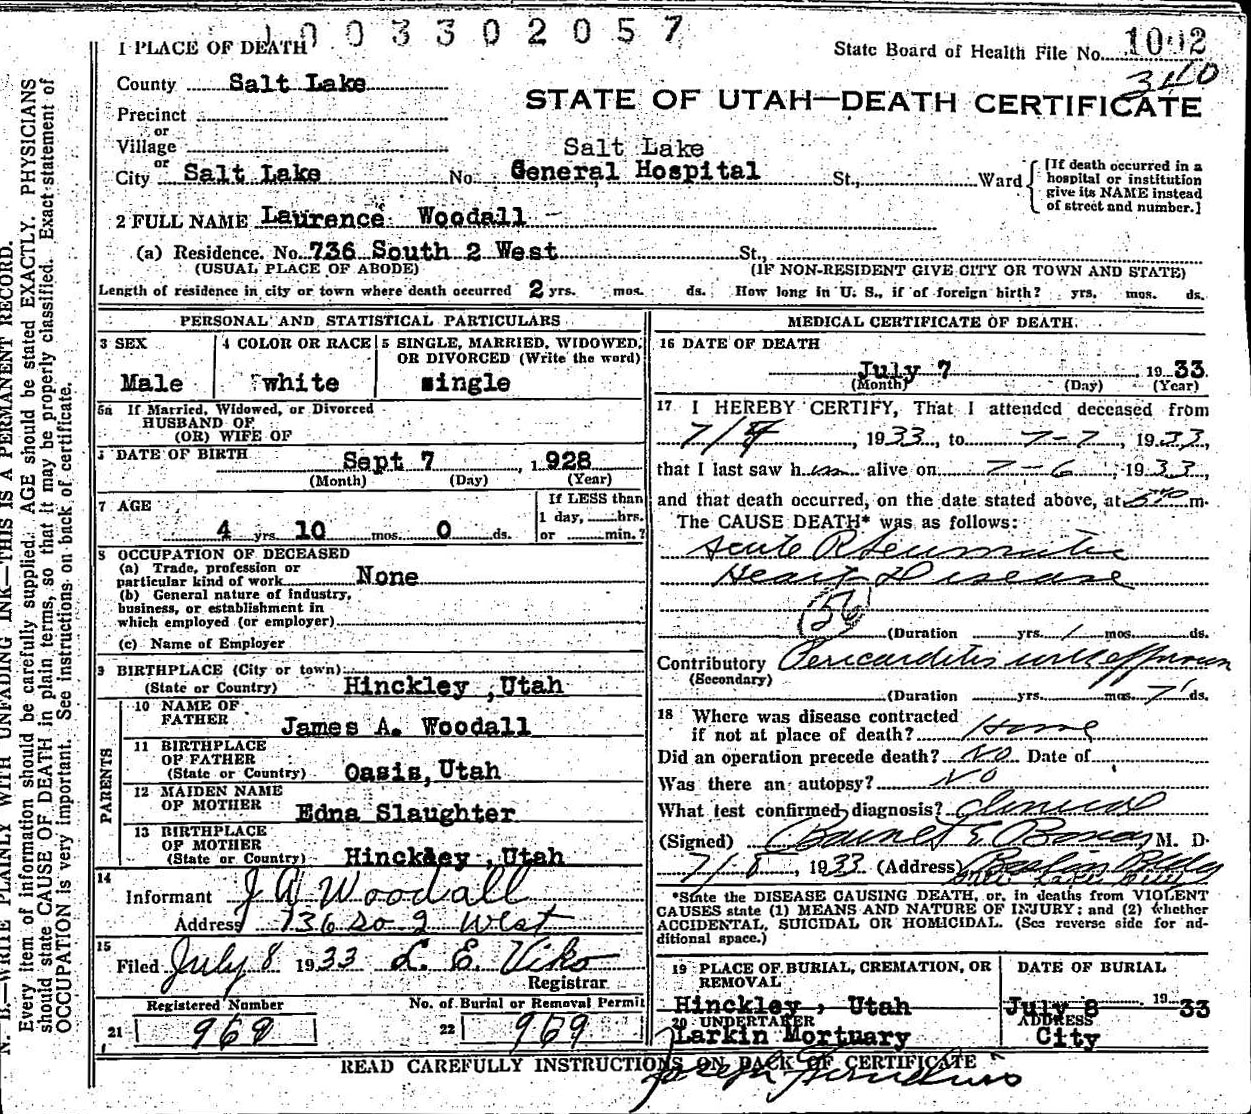 1003302057
1 PLACE OF DEATH
State Board of Health File No. 1002
3410
County Salt Lake
STATE OF UTAH—DEATH CERTIFICATE
Precinct
or
Village
or
City Salt Lake No. Salt Lake General Hospital St., Ward
[If death occurred in a hospital or institution give its NAME instead of street and number.]
2 FULL NAME Laurence Woodall
(a) Residence. No. 736 South 2 West St.,
(USUAL PLACE OF ABODE) (IF NON-RESIDENT GIVE CITY OR TOWN AND STATE)
Length of residence in city or town where death occurred 2 yrs. mos. ds. How long in U. S., if of foreign birth? yrs. mos. ds.
PERSONAL AND STATISTICAL PARTICULARS
3 SEX
Male
4 COLOR OR RACE
white
5 SINGLE, MARRIED, WIDOWED, OR DIVORCED (Write the word)
single
5a If Married, Widowed, or Divorced
HUSBAND OF
(OR) WIFE OF
DATE OF BIRTH
Sept 7, 1928
(Month) (Day) (Year)
7 AGE
4 yrs. 10 mos. 0 ds.
If LESS than
1 day, hrs.
or min.?
8 OCCUPATION OF DECEASED
(a) Trade, profession or
particular kind of work None
(b) General nature of industry,
business, or establishment in
which employed (or employer)
(c) Name of Employer
9 BIRTHPLACE (City or town)
(State or Country) Hinckley, Utah
PARENTS
10 NAME OF
FATHER James A. Woodall
11 BIRTHPLACE
OF FATHER
(State or Country) Oasis, Utah
12 MAIDEN NAME
OF MOTHER Edna Slaughter
13 BIRTHPLACE
OF MOTHER
(State or Country) Hinckley, Utah
14
Informant J A Woodall
Address 736 So 2 West
15
Filed July 8 1933 L. E. Viko
Registrar
Registered Number
21 968
No. of Burial or Removal Permit
22 969
MEDICAL CERTIFICATE OF DEATH
16 DATE OF DEATH
July 7, 1933
(Month) (Day) (Year)
17 I HEREBY CERTIFY, That I attended deceased from
, 1933, to 7-7, 1933,
that I last saw him alive on 7-6, 1933,
and that death occurred, on the date stated above, at m.
The CAUSE DEATH* was as follows:
Acute Rheumatic
Heart Disease
(56)
(Duration yrs. 1 mos. ds.
Contributory Pericarditis with effusion
(Secondary)
(Duration yrs. mos. 7 ds.
18 Where was disease contracted
if not at place of death? Home
Did an operation precede death? No Date of
Was there an autopsy? No
What test confirmed diagnosis? Clinical
(Signed) M. D.
7/8, 1933 (Address)
*State the DISEASE CAUSING DEATH, or, in deaths from VIOLENT
CAUSES state (1) MEANS AND NATURE OF INJURY; and (2) whether
ACCIDENTAL, SUICIDAL OR HOMICIDAL. (See reverse side for ad-
ditional space.)
19 PLACE OF BURIAL, CREMATION, OR
REMOVAL
Hinckley, Utah
DATE OF BURIAL
July 8 1933
20 UNDERTAKER
Larkin Mortuary
ADDRESS
City
READ CAREFULLY INSTRUCTIONS ON BACK OF CERTIFICATE
Joseph
N. B.—WRITE PLAINLY WITH UNFADING INK—THIS IS A PERMANENT RECORD.
Every item of information should be carefully supplied. AGE should be stated EXACTLY. PHYSICIANS
should state CAUSE OF DEATH in plain terms, so that it may be properly classified. Exact statement of
OCCUPATION is very important. See instructions on back of certificate.